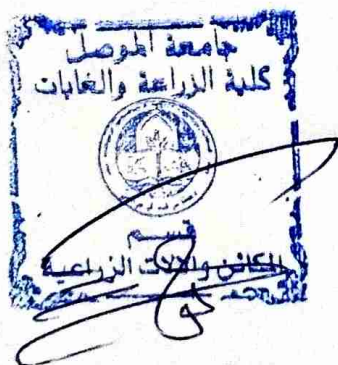 جامعة الموصل
كلية الزراعة والغابات
قسم
المكائن والآلات الزراعية